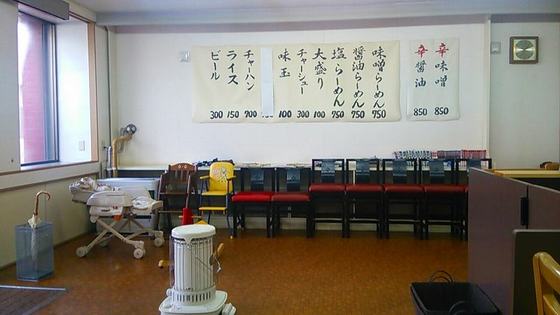 辛味噌 850
辛醤油 850
味噌らーめん 750
醤油らーめん 750
塩らーめん 750
大盛り 100
チャーシュー 300
味玉 100
チャーハン 700
ライス 150
ビール 300